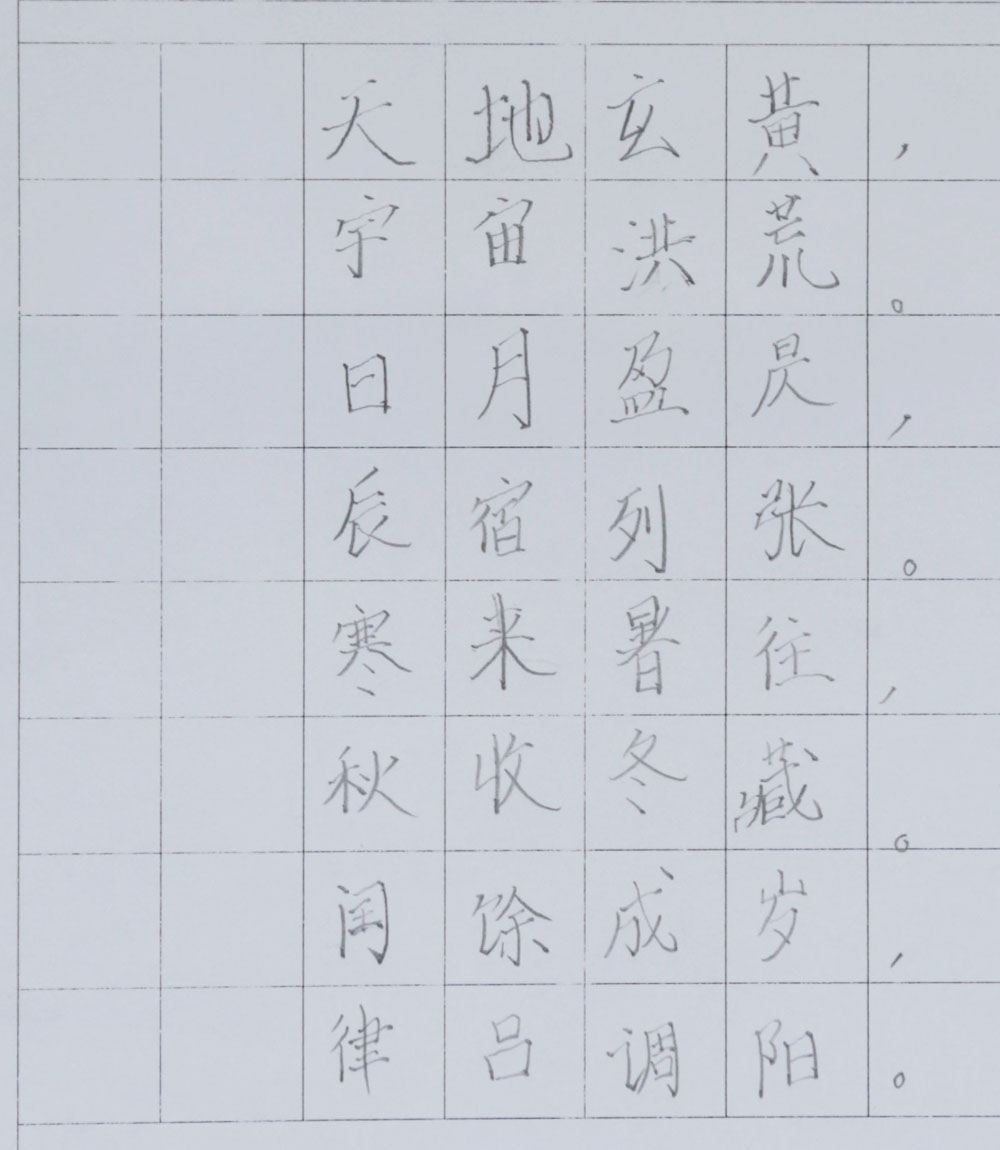 天地玄黄，
宇宙洪荒。
日月盈昃，
辰宿列张。
寒来暑往，
秋收冬藏。
闰馀成岁，
律吕调阳。